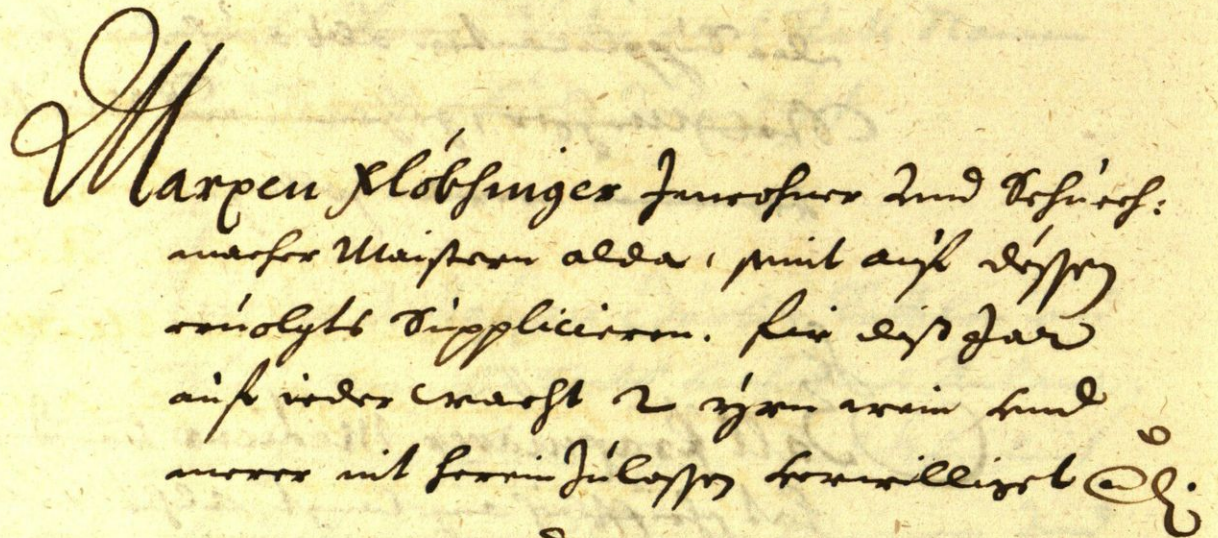 Marxen Plöbsinger Inwohner vnd Schuech:
macher Maistern alda, seint auf dessen
eruolgts Supplicieren. für diß Jar
auf ieder wacht 2 yrn wein vnd
merer nit herein Zulassen verwilliget